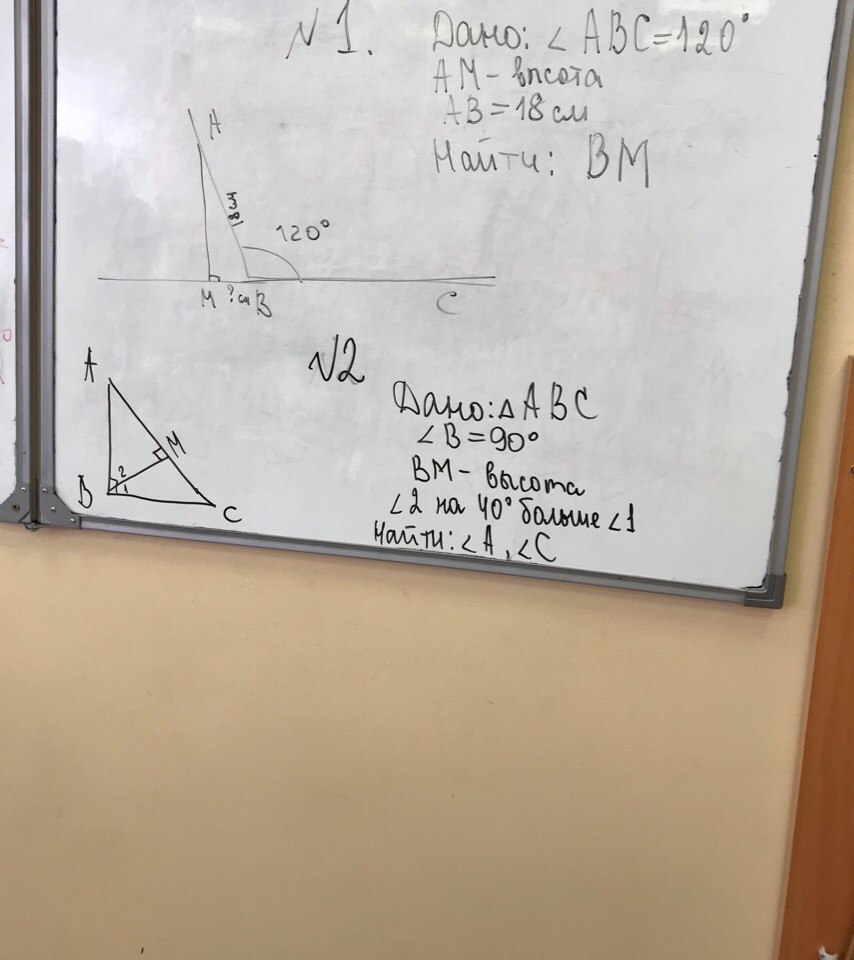 N 1. Дано: ∠ ABC=120°
AM - высота
AB = 18 см
Найти: BM
A
18
120°
M ? см B C
N2
A
Дано: △ ABC
∠ B = 90°
M
BM - высота
2
B 1
∠2 на 40° больше ∠1
C
Найти: ∠A, ∠C